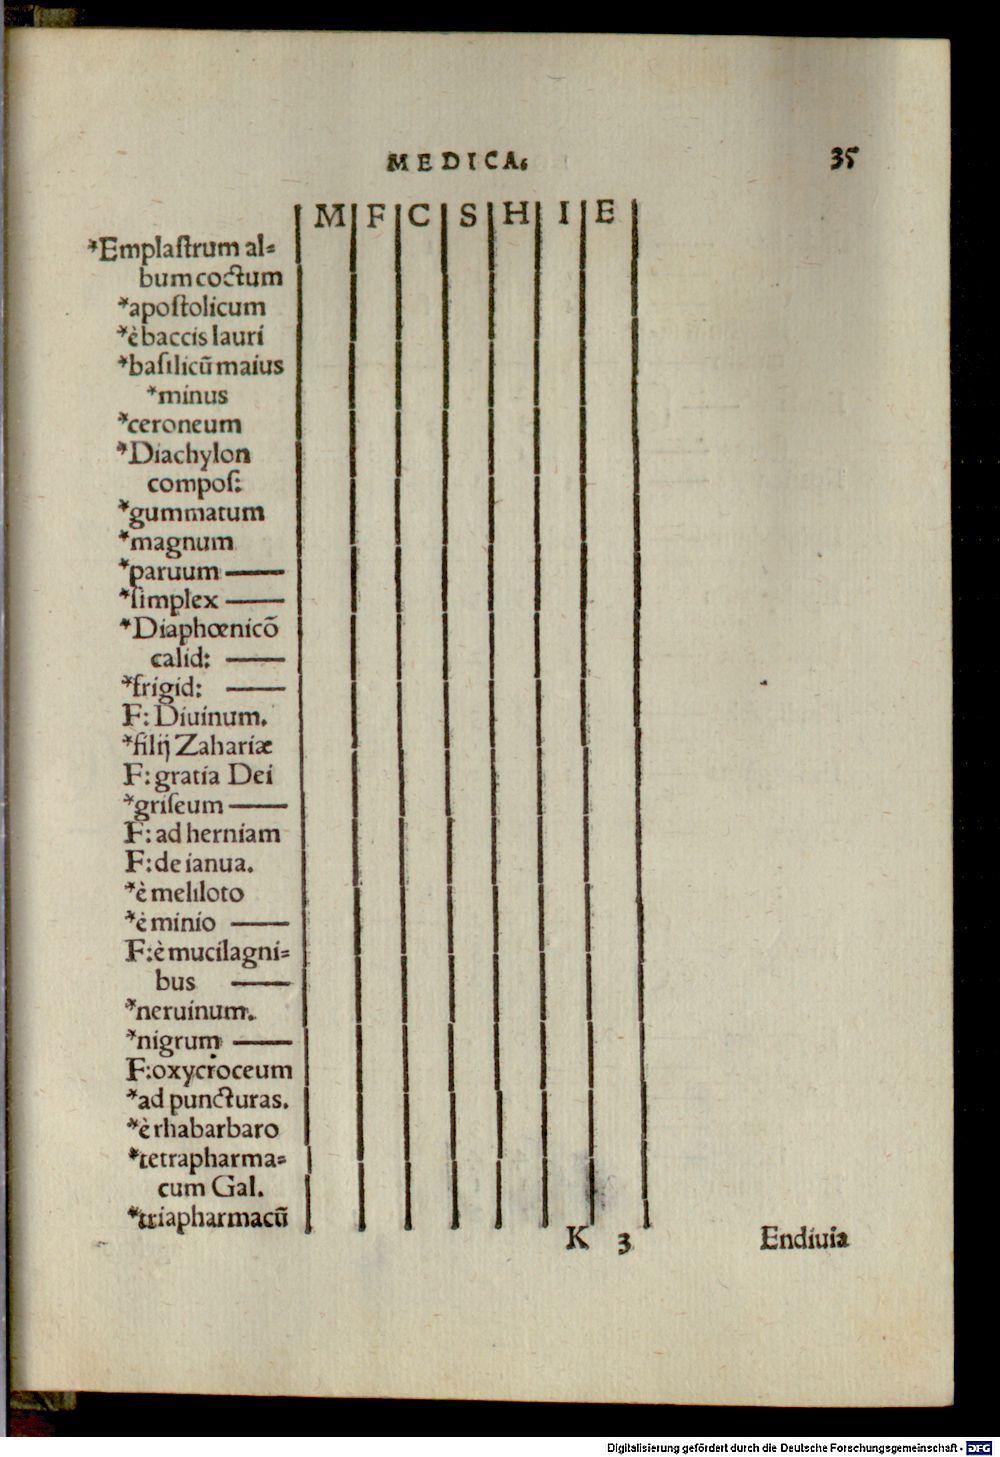 MEDICA. 35
M F C S H I E
*Emplaſtrum al=
bum coctum
*apoſtolicum
*è baccis lauri
*baſilicũ maius
*minus
*ceroneum
*Diachylon
compoſ:
*gummatum
*magnum
*paruum ——
*ſimplex ——
*Diaphœnicõ
calid: ——
*frigid: ——
F: Diuinum.
*filij Zahariæ
F: gratia Dei
*griſeum ——
F: ad herniam
F: de ianua.
*è meliloto
*è minio ——
F: è mucilagni=
bus ——
*neruinum.
*nigrum ——
F: oxycroceum
*ad puncturas.
*è rhabarbaro
*tetrapharma=
cum Gal.
*triapharmacũ
K 3 Endiuia
Digitalisierung gefördert durch die Deutsche Forschungsgemeinschaft - DFG